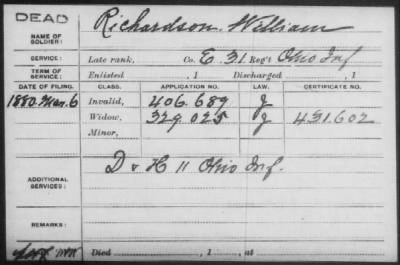 DEAD
NAME OF SOLDIER: Richardson, William
SERVICE: Late rank, Co. E. 31 Reg't Ohio Inf
TERM OF SERVICE: Enlisted , 1 Discharged , 1
DATE OF FILING. CLASS. APPLICATION NO. LAW. CERTIFICATE NO.
1880. Mar. 6 Invalid, 406.689 J
Widow, 329.025 J 451.602
Minor,
ADDITIONAL SERVICES: D & H 11 Ohio Inf.
REMARKS:
Died , 1 , at